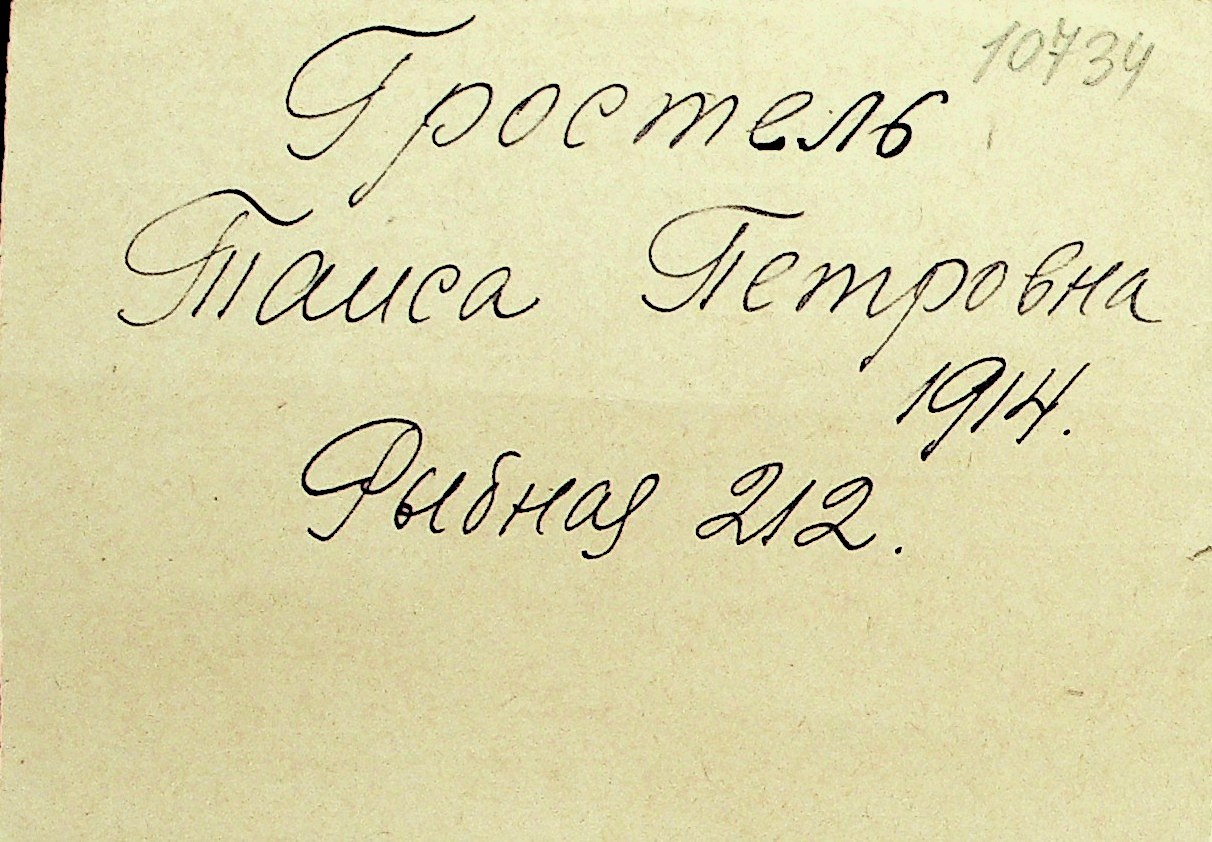 10734
Гростель
Таиса Петровна
1914.
Рыбная 212.